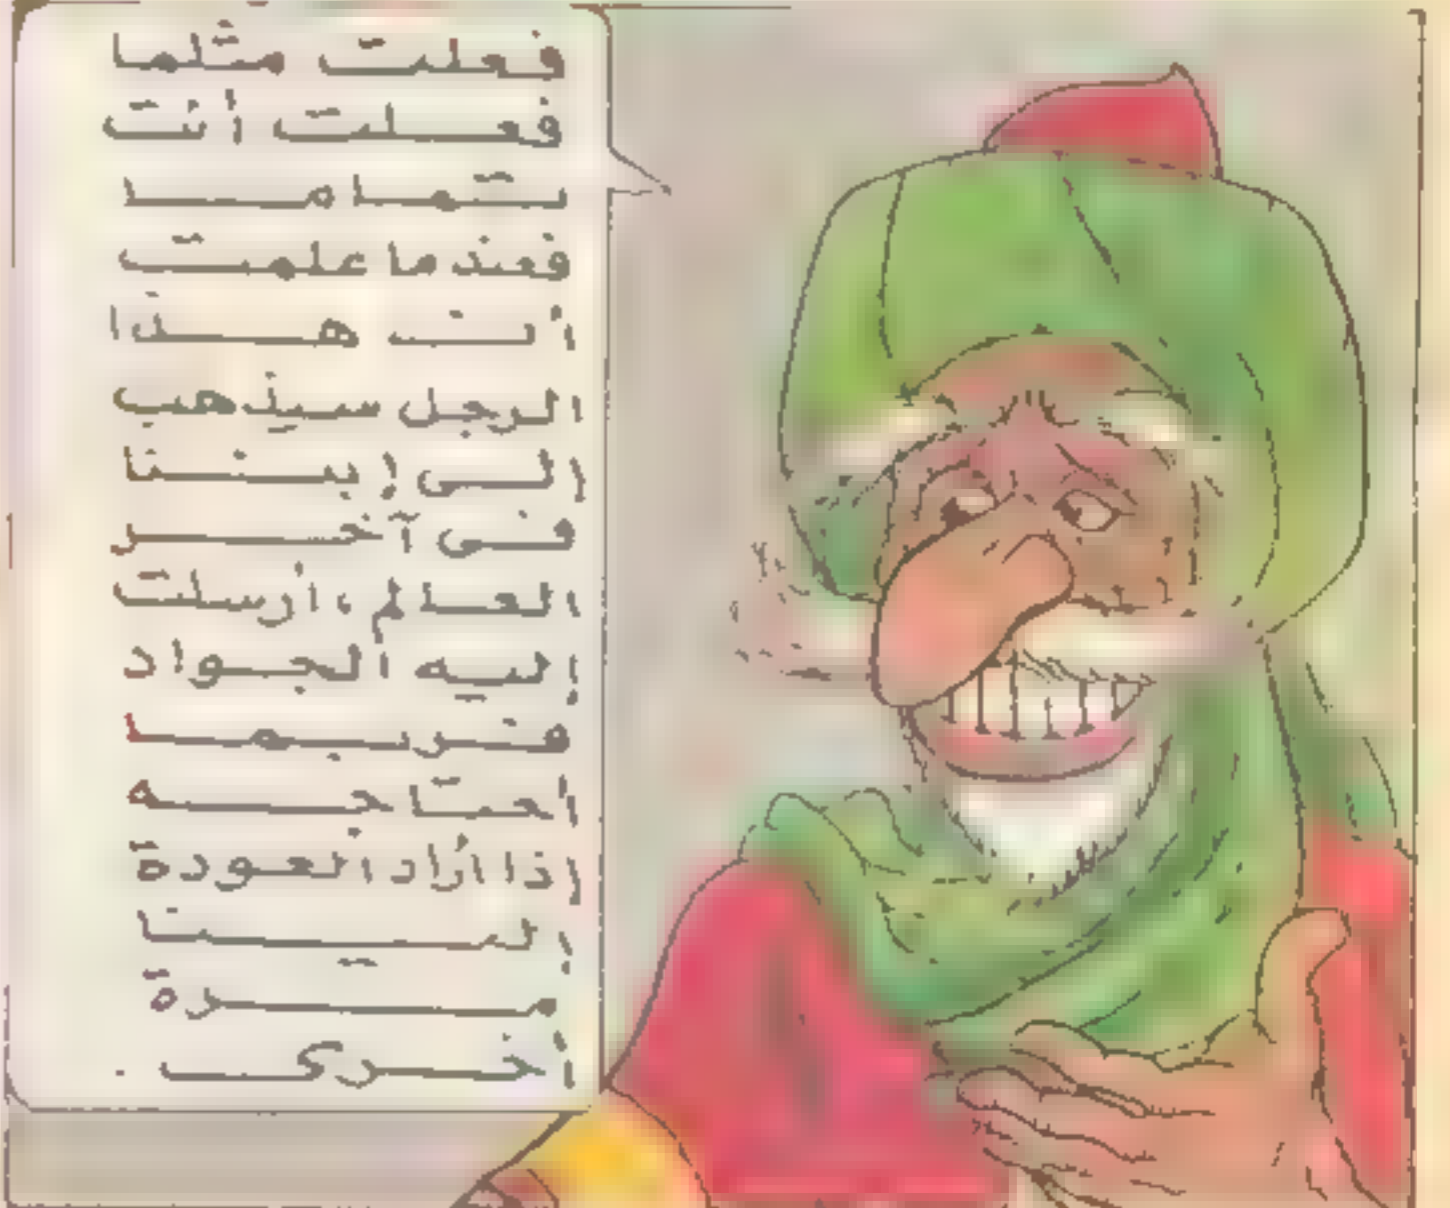 فعلت مثلما
فعلت أنت
تماما
فعندما علمت
أن هذا
الرجل سيذهب
إلى إبننا
فى آخر
العالم، أرسلت
إليه الجواد
فربما
احتاجه
إذا أراد العودة
إلينا
مرة
أخرى .